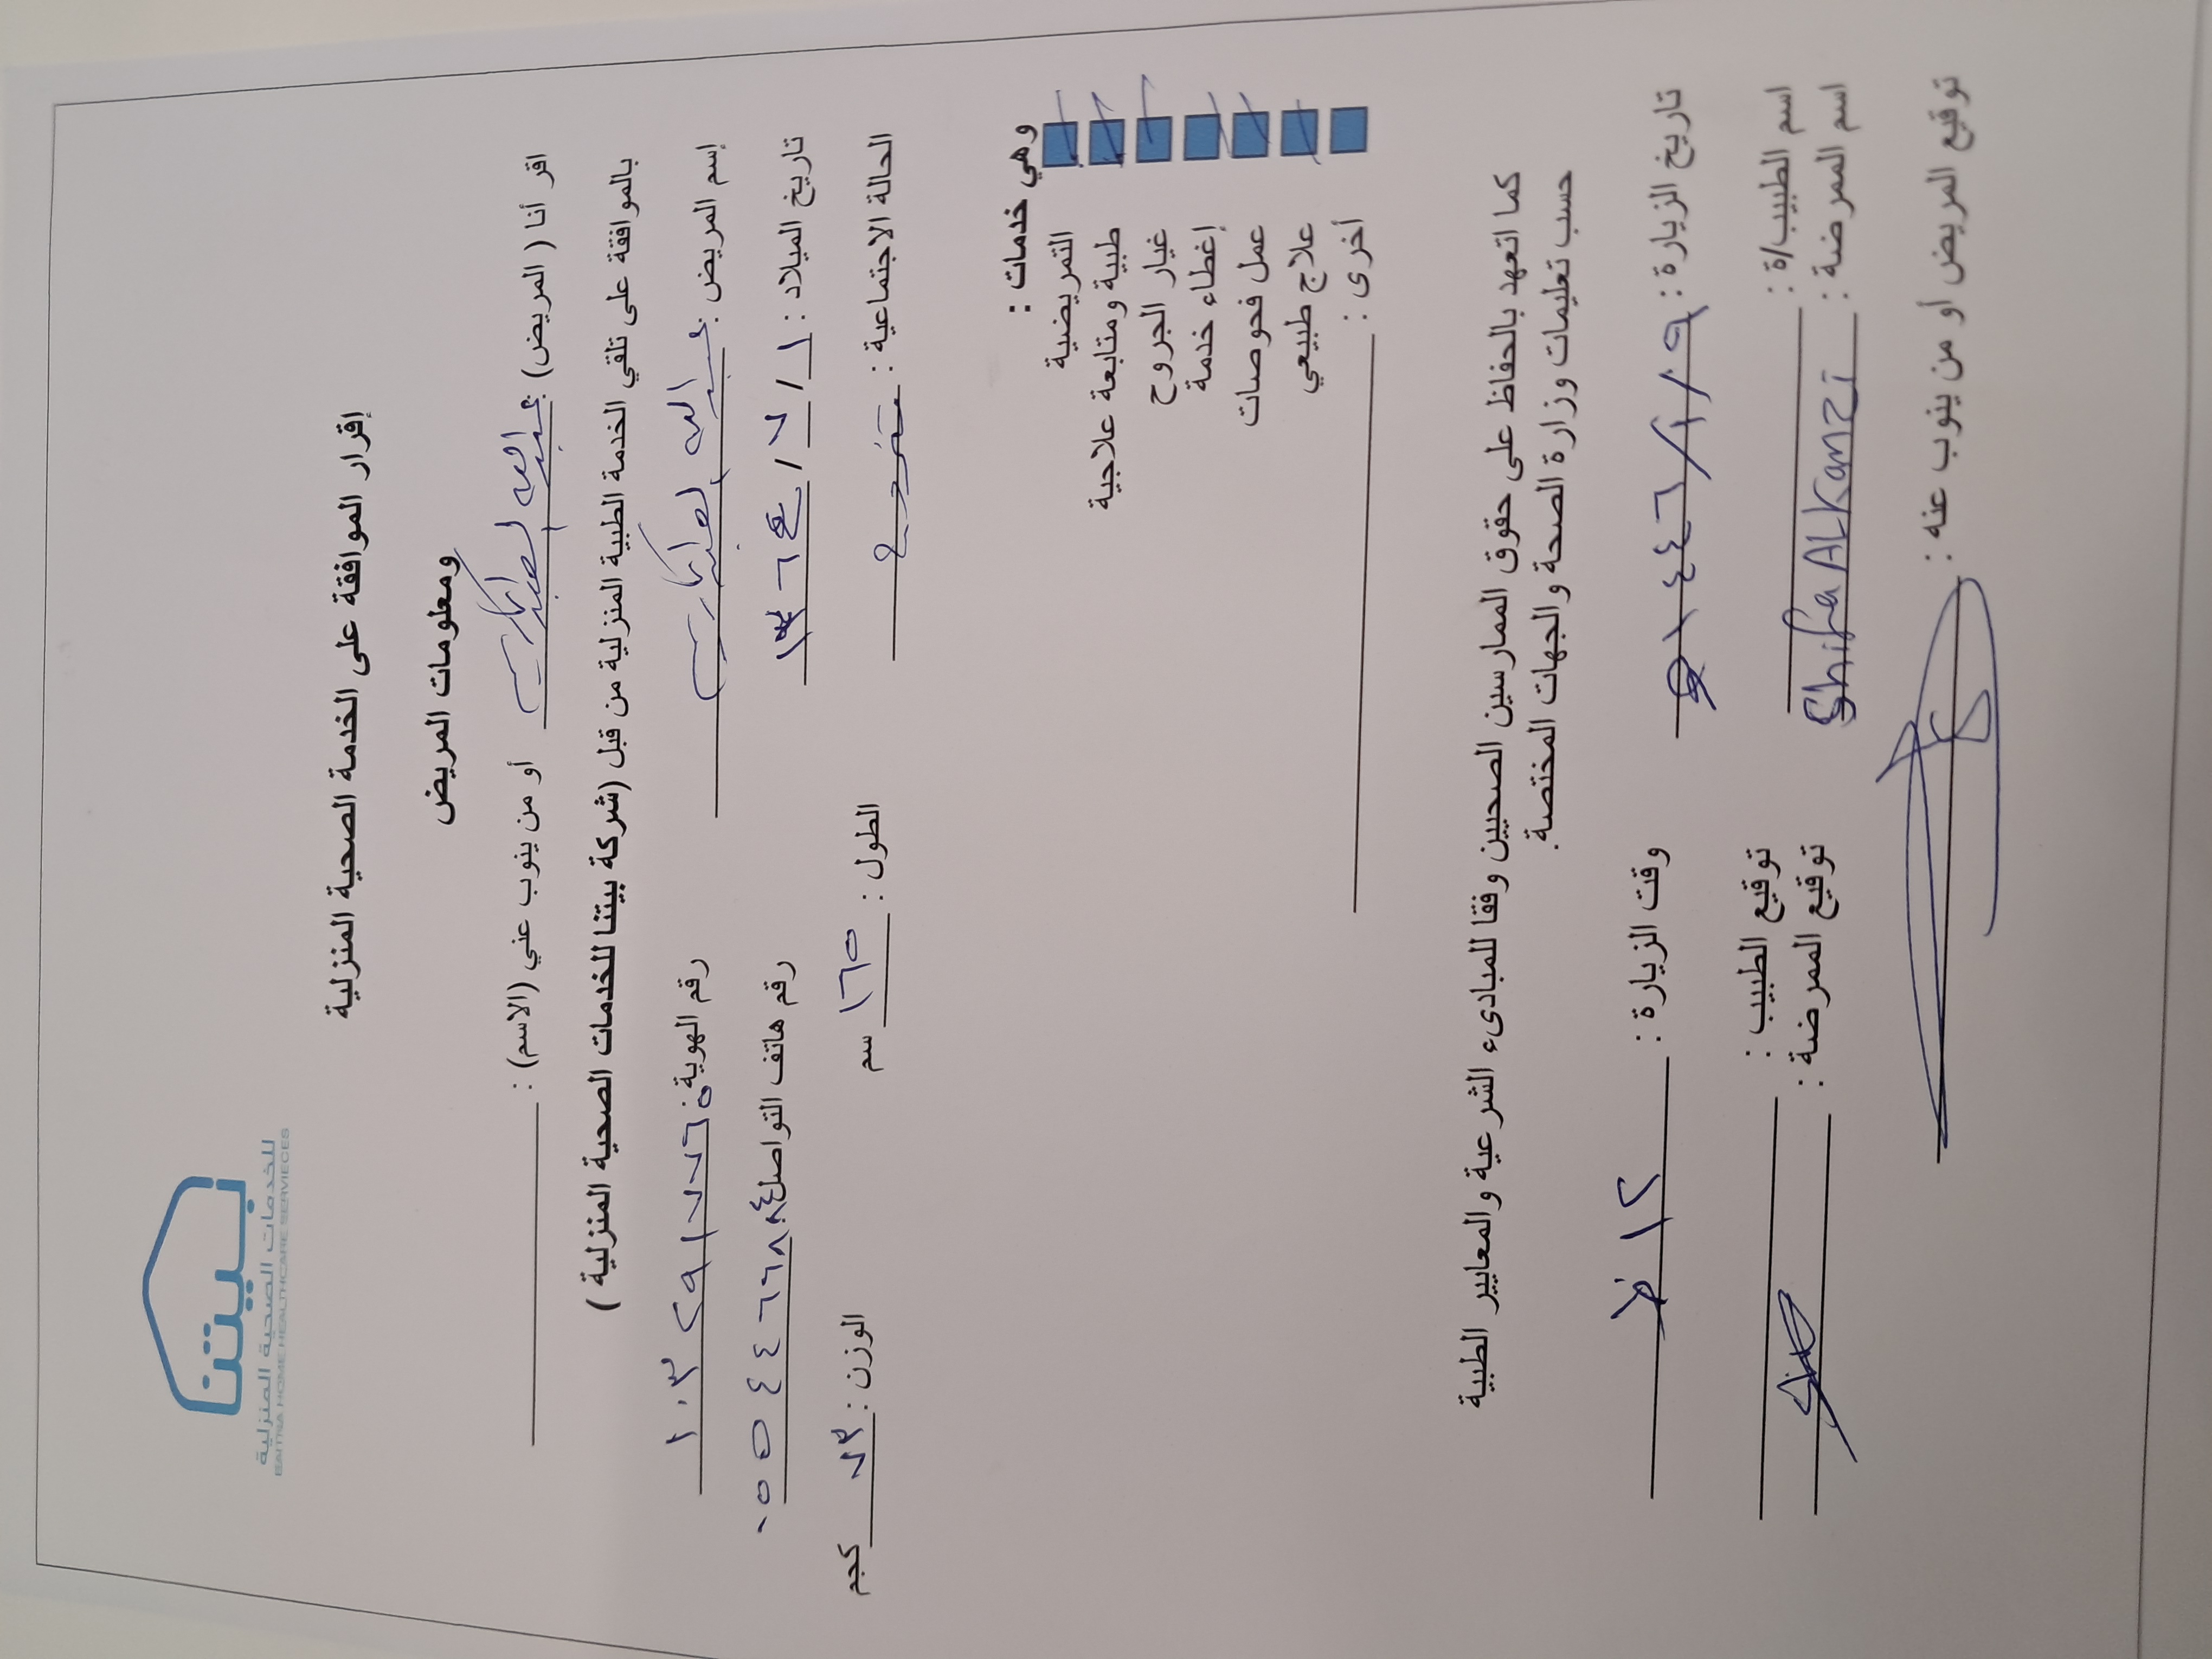 بيتنا
للخدمات الصحية المنزلية
BAITNA HOME HEALTHCARE SERVIECES
إقرار الموافقة على الخدمة الصحية المنزلية
ومعلومات المريض
اقر أنا ( المريض) عبدالله أو من ينوب عني (الاسم) :
بالموافقة على تلقي الخدمة الطبية المنزلية من قبل (شركة بيتنا للخدمات الصحية المنزلية )
إسم المريض : عبدالله رقم الهوية : ١٠٣٢٩١٧٧٦٥
تاريخ الميلاد : ١ / ٧ / ١٣٦٤ رقم هاتف التواصل ٠٥٥٤٤٦٦٨٨٤
الحالة الاجتماعية : الطول : ١٦٥ سم الوزن : ٧٣ كجم
وهي خدمات :
التمريضية
طبية ومتابعة علاجية
غيار الجروح
إغطاء خدمة
عمل فحوصات
علاج طبيعي
أخرى :
كما اتعهد بالحفاظ على حقوق الممارسين الصحيين وفقا للمبادىء الشرعية والمعايير الطبية
حسب تعليمات وزارة الصحة والجهات المختصة.
تاريخ الزيارة : ١٩/١/١٤٤٦هـ وقت الزيارة : ١٢ ظ
اسم الطبيب/ة : توقيع الطبيب :
اسم الممرضة : Shifa ALKanzi توقيع الممرضة :
توقيع المريض أو من ينوب عنه :